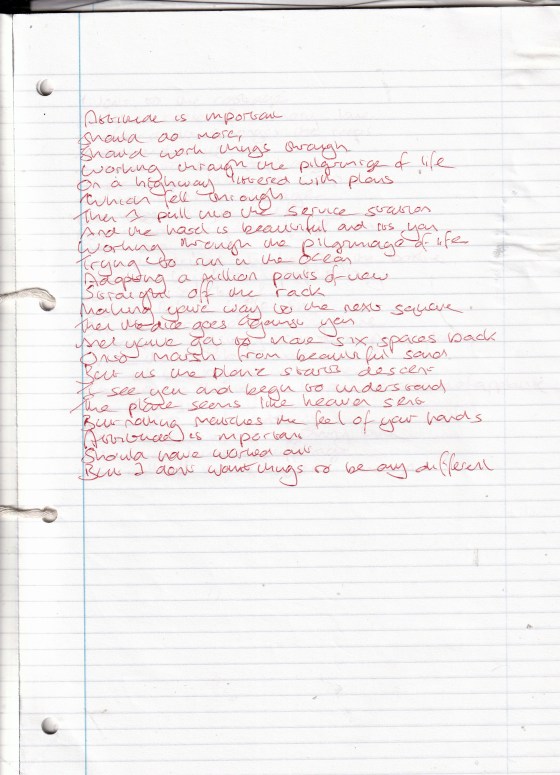 Attitude is important
Should do more,
Should work things through
Working through the pilgrimage of life
On a highway littered with plans
Which fell through
Then I pull into the service station
And the hand is beautiful and its you
Working through the pilgrimage of life
Trying to run in the ocean
Adopting a million points of view
Straight off the rack
Making your way to the next square.
Then the dice goes against you
And you've got to move six spaces back
Onto marsh from beautiful sand
But as the plane starts descent
I see you and begin to understand
The place seems like heaven sent
But nothing matches the feel of your hands
Attitude is important
Should have worked out
But I dont want things to be any different